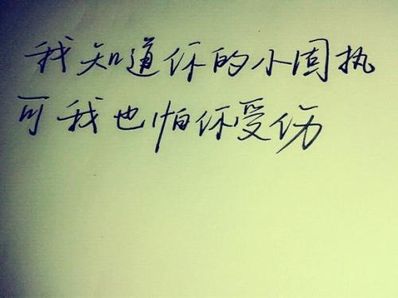 我知道你的小固执
可我也怕你受伤